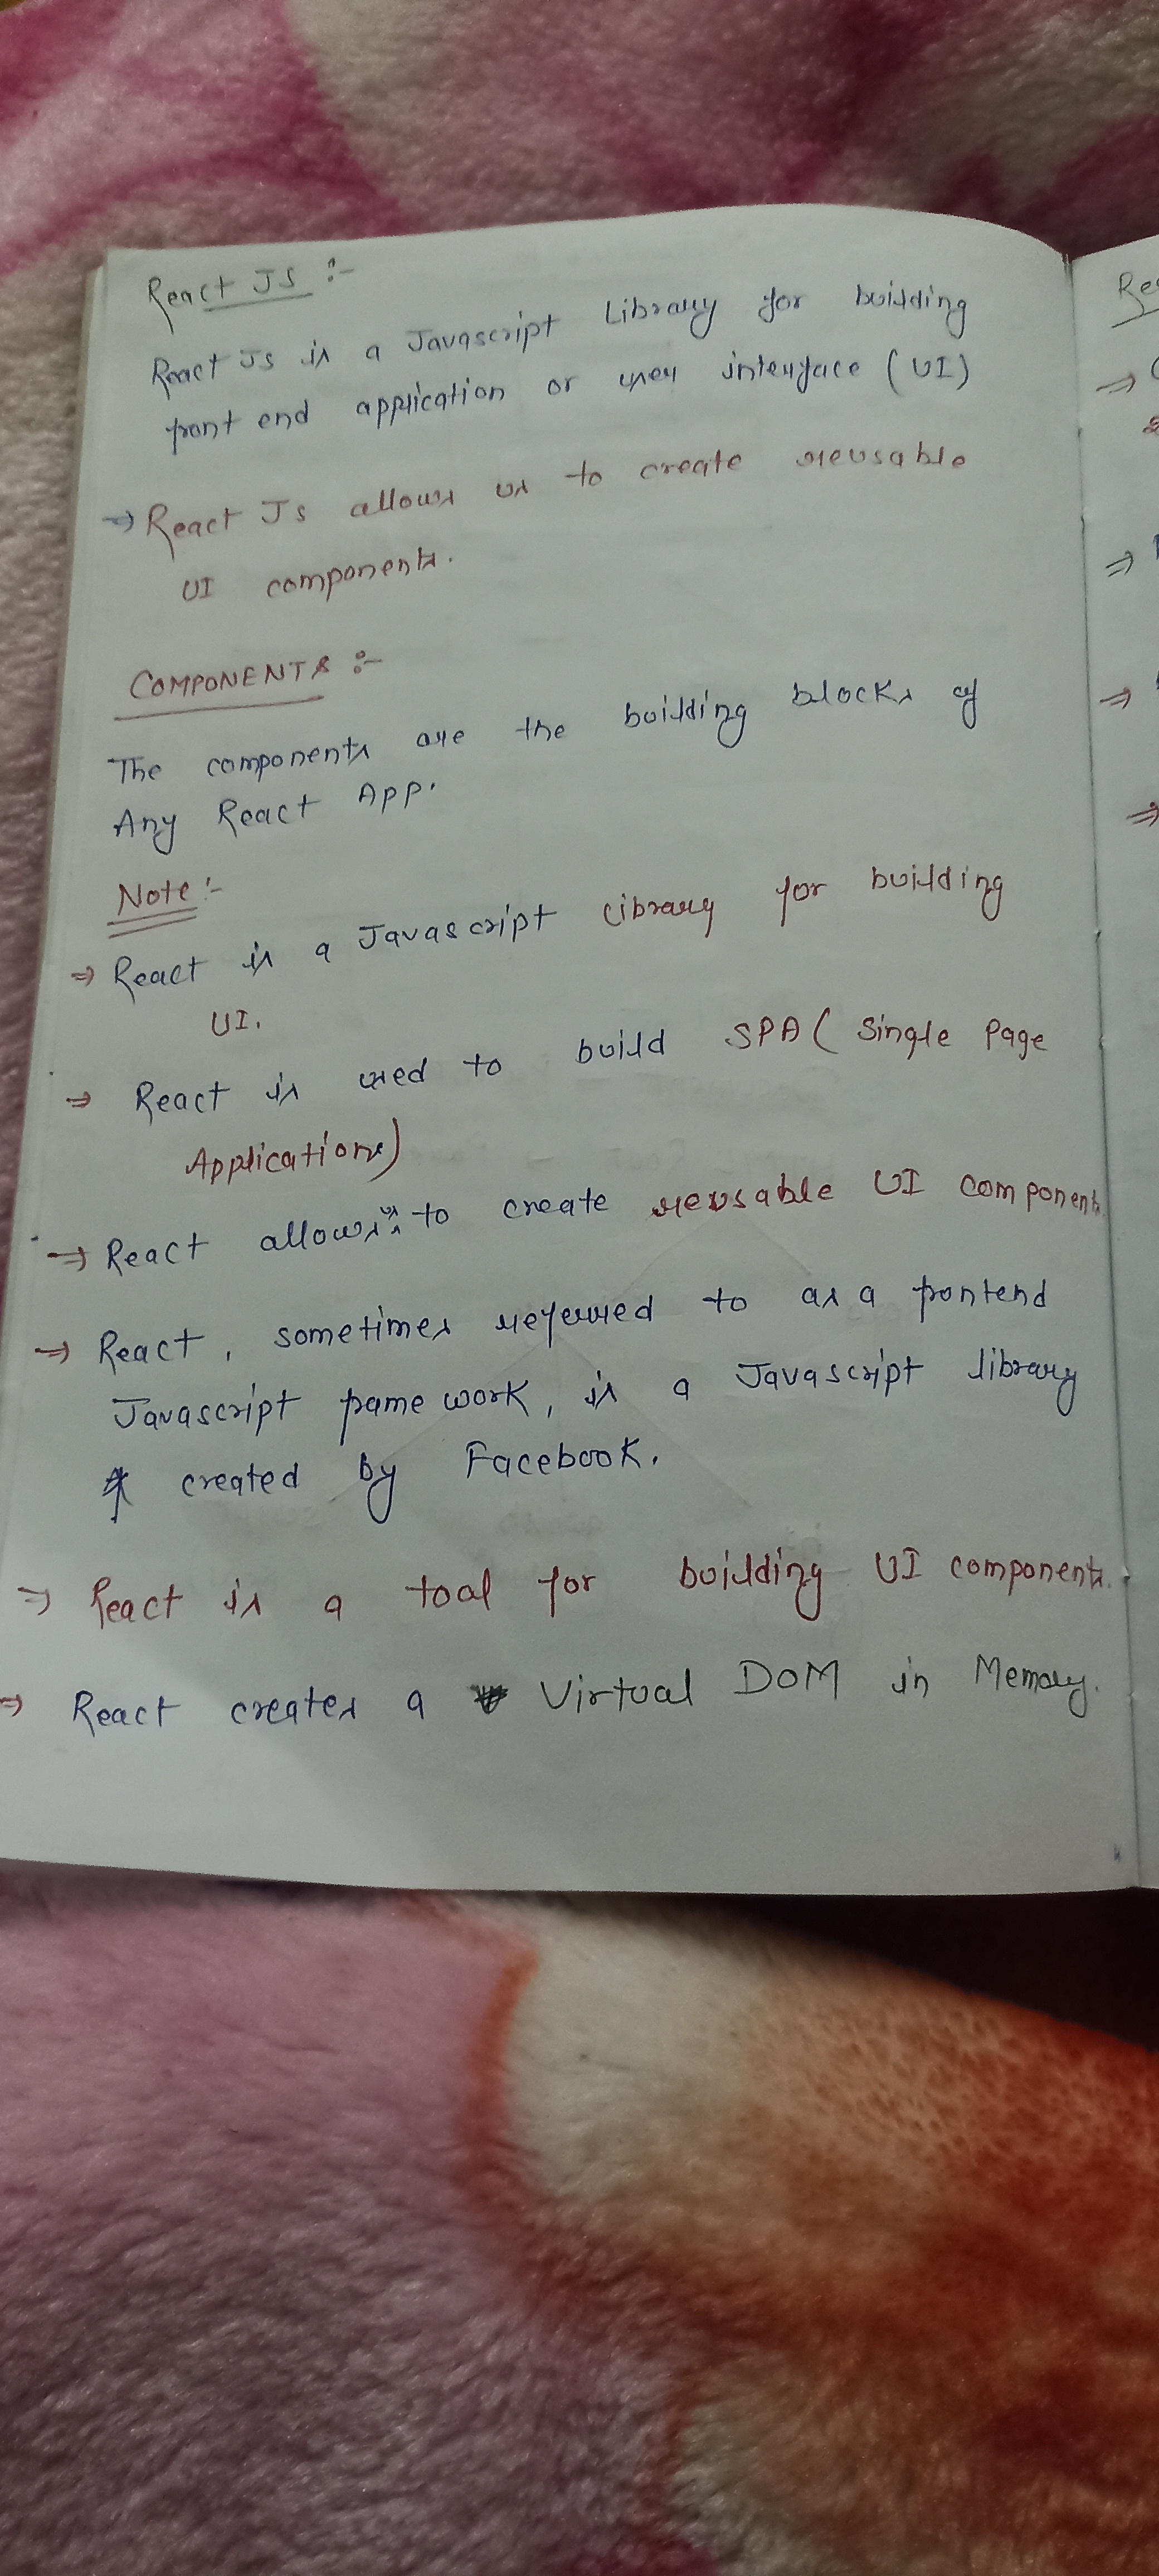 React JS :-
React Js is a Javascript Library for building
front end application or user interface (UI)
⇒ React Js allows us to create reusable
UI components.
COMPONENTS :-
The components are the building blocks of
Any React App.
Note :-
⇒ React is a Javascript library for building
UI.
⇒ React is used to build SPA ( Single Page
Applications)
⇒ React allows us to create reusable UI components.
⇒ React, sometimes referred to as a frontend
Javascript frame work, is a Javascript library
created by Facebook.
⇒ React is a tool for building UI components.
⇒ React creates a Virtual DOM in Memory.